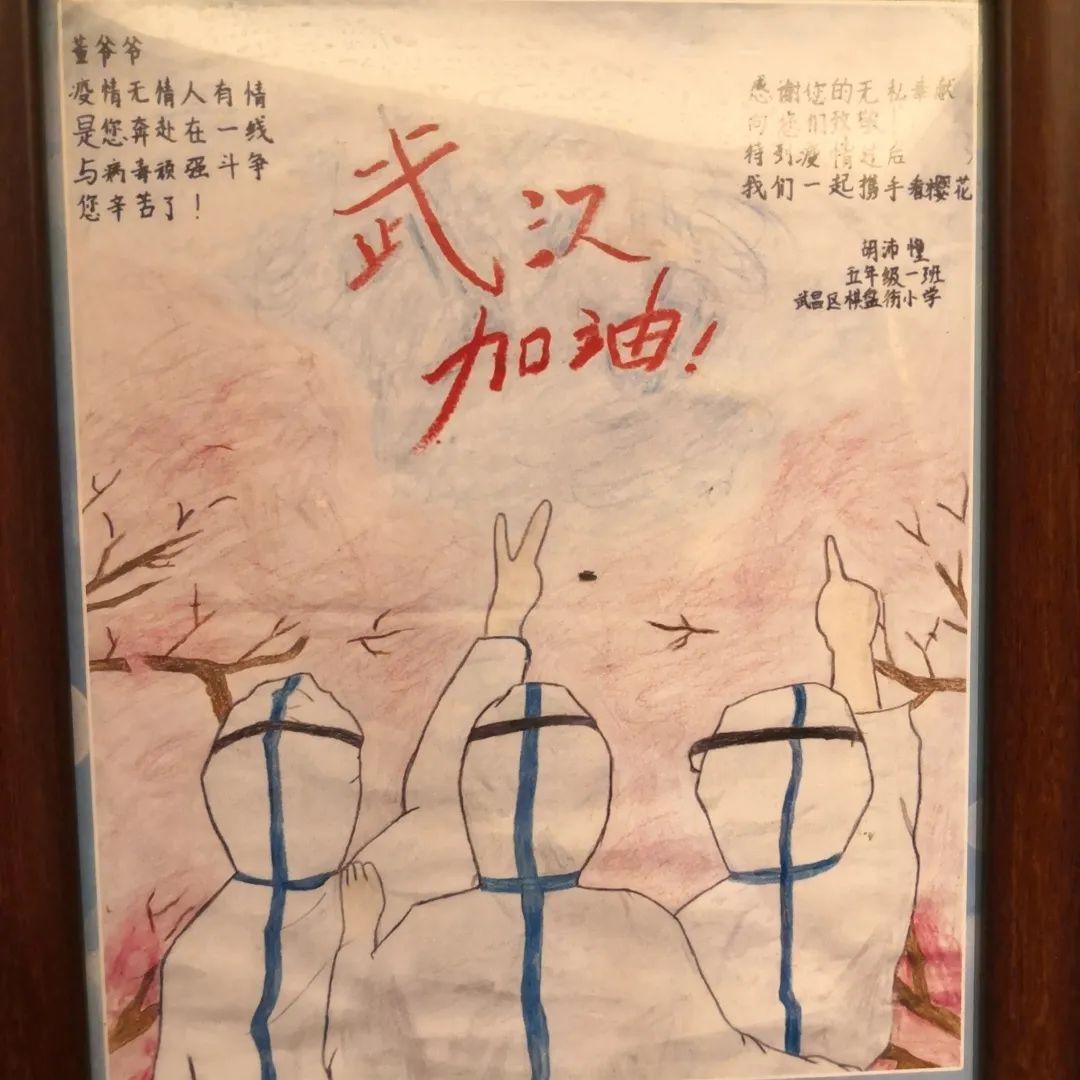 董爷爷
疫情无情人有情
是您奔赴在一线
与病毒顽强斗争
您辛苦了！
武汉
加油！
感谢您的无私奉献
向您们致敬
待到疫情过后
我们一起携手看樱花
胡沛
五年级一班
武昌区棋盘街小学